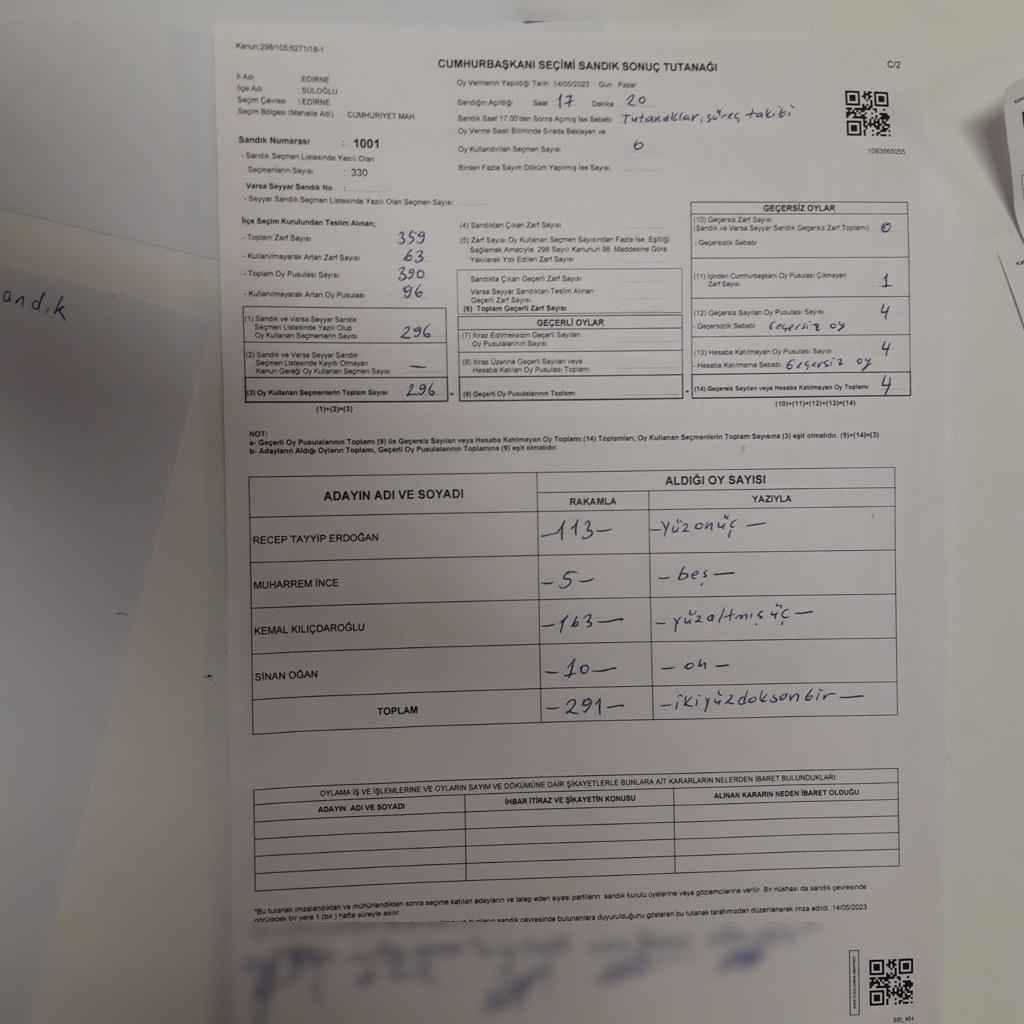 Kanun:298/105;6271/18-1
CUMHURBAŞKANI SEÇİMİ SANDIK SONUÇ TUTANAĞI
C/2
İl Adı : EDİRNE
İlçe Adı : SÜLOĞLU
Seçim Çevresi : EDİRNE
Seçim Bölgesi (Mahalle Adı) : CUMHURİYET MAH
Oy Vermenin Yapıldığı Tarih: 14/05/2023 Gün: Pazar
Sandığın Açıldığı Saat 17 Dakika 20
Sandık Saat 17.00'den Sonra Açılmış İse Sebebi: Tutanaklar, süreç takibi
Oy Verme Saati Bitiminde Sırada Bekleyen ve
Oy Kullandırılan Seçmen Sayısı
Birden Fazla Sayım Döküm Yapılmış İse Sayısı:
Sandık Numarası : 1001
- Sandık Seçmen Listesinde Yazılı Olan
Seçmenlerin Sayısı : 330
Varsa Seyyar Sandık No :
- Seyyar Sandık Seçmen Listesinde Yazılı Olan Seçmen Sayısı:
İlçe Seçim Kurulundan Teslim Alınan;
- Toplam Zarf Sayısı 359
- Kullanılmayarak Artan Zarf Sayısı 63
- Toplam Oy Pusulası Sayısı 390
- Kullanılmayarak Artan Oy Pusulası 96
(1) Sandık ve Varsa Seyyar Sandık
Seçmen Listesinde Yazılı Olup
Oy Kullanan Seçmenlerin Sayısı 296
(2) Sandık ve Varsa Seyyar Sandık
Seçmen Listesinde Kayıtlı Olmayan
Kanun Gereği Oy Kullanan Seçmen Sayısı —
(3) Oy Kullanan Seçmenlerin Toplam Sayısı 296
(1)+(2)=(3)
(4) Sandıktan Çıkan Zarf Sayısı
(5) Zarf Sayısı Oy Kullanan Seçmen Sayısından Fazla İse, Eşitliği
Sağlamak Amacıyla, 298 Sayılı Kanunun 98. Maddesine Göre
Yakılarak Yok Edilen Zarf Sayısı
Sandıkta Çıkan Geçerli Zarf Sayısı
Varsa Seyyar Sandıktan Teslim Alınan
Geçerli Zarf Sayısı
(6) Toplam Geçerli Zarf Sayısı
GEÇERLİ OYLAR
(7) İtiraz Edilmeksizin Geçerli Sayılan
Oy Pusulalarının Sayısı
(8) İtiraz Üzerine Geçerli Sayılan veya
Hesaba Katılan Oy Pusulası Toplamı
(9) Geçerli Oy Pusulalarının Toplamı
GEÇERSİZ OYLAR
(10) Geçersiz Zarf Sayısı
(Sandık ve Varsa Seyyar Sandık Geçersiz Zarf Toplamı) 0
- Geçersizlik Sebebi
(11) İçinden Cumhurbaşkanı Oy Pusulası Çıkmayan
Zarf Sayısı 1
(12) Geçersiz Sayılan Oy Pusulası Sayısı 4
- Geçersizlik Sebebi Geçersiz oy
(13) Hesaba Katılmayan Oy Pusulası Sayısı 4
- Hesaba Katılmama Sebebi Geçersiz oy
(14) Geçersiz Sayılan veya Hesaba Katılmayan Oy Toplamı 4
(10)+(11)+(12)+(13)=(14)
NOT:
a- Geçerli Oy Pusulalarının Toplamı (9) ile Geçersiz Sayılan veya Hesaba Katılmayan Oy Toplamı (14) Toplamları, Oy Kullanan Seçmenlerin Toplam Sayısına (3) eşit olmalıdır. (9)+(14)=(3)
b- Adayların Aldığı Oyların Toplamı, Geçerli Oy Pusulalarının Toplamına (9) eşit olmalıdır.
ADAYIN ADI VE SOYADI
ALDIĞI OY SAYISI
RAKAMLA YAZIYLA
RECEP TAYYİP ERDOĞAN -113- -Yüzonüç-
MUHARREM İNCE -5- -beş-
KEMAL KILIÇDAROĞLU -163- -yüzaltmışüç-
SİNAN OĞAN -10- -on-
TOPLAM -291- -ikiyüzdoksanbir-
OYLAMA İŞ VE İŞLEMLERİNE VE OYLARIN SAYIM VE DÖKÜMÜNE DAİR ŞİKAYETLERLE BUNLARA AİT KARARLARIN NELERDEN İBARET BULUNDUKLARI
ADAYIN ADI VE SOYADI İHBAR İTİRAZ VE ŞİKAYETİN KONUSU ALINAN KARARIN NEDEN İBARET OLDUĞU
*Bu tutanak imzalandıktan ve mühürlendikten sonra seçime katılan adayların ve talep eden siyasi partilerin, sandık kurulu üyelerine veya gözlemcilerine verilir. Bir nüshası da sandık çevresinde
görülecek bir yere 1 (bir) hafta süreyle asılır.
sandık çevresinde bulunanlara duyurulduğunu gösteren bu tutanak tarafımızdan düzenlenerek imza edildi. 14/05/2023
andık